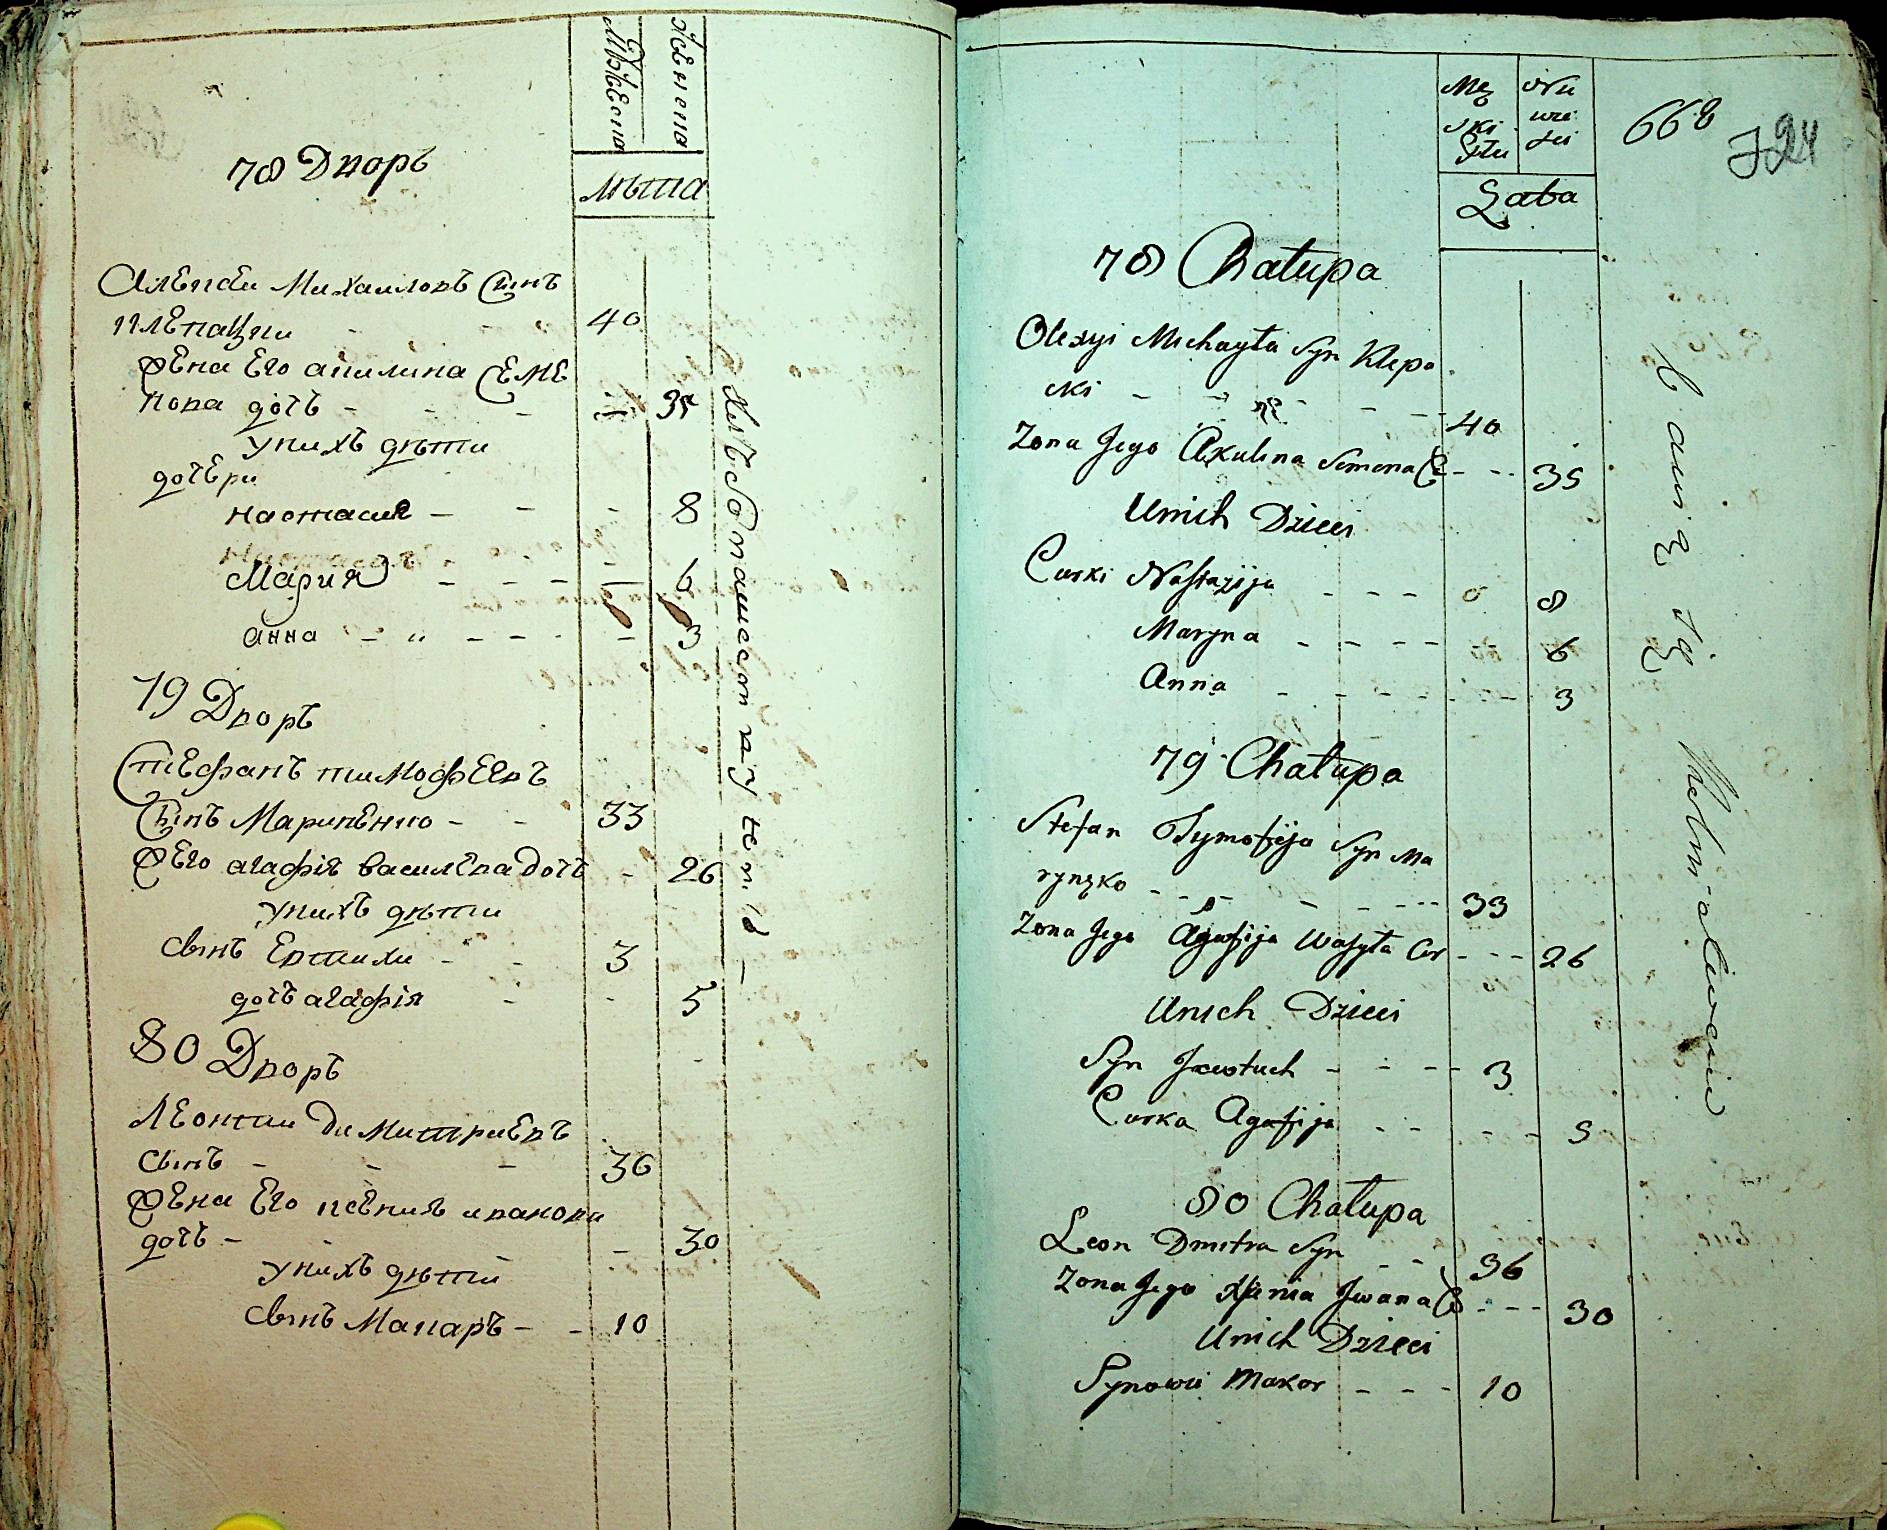 Мужеска
Женска
Лѣта
78 Дворъ
Алексеи Михаиловъ Сынъ
Клепацки - - 40
Жена Его акилина Семе
нова дочь - - 35
унихъ дѣти
дочери
настасия - - - 8
Мария - - - - 6
анна - - - - 3
79 Дворъ
Стефанъ тимофеевъ
Сынъ Мариненко - - 33
Ж Его агафія василева дочь - 26
унихъ дѣти
Сынъ Евтихи - - 3
дочь агафія - - 5
80 Дворъ
Леонтии Димитриевъ
сынъ - - - 36
Жена Его ксения иванова
дочь - - 30
унихъ дѣти
Сынъ Макаръ - - 10
Męz
ski
Płci
Nu
wie
sci
Lata
668
724
78 Chałupa
Olexyi Michayła Syn Klepa
cki - - - - 40
Zona Jego Akulina Semena C - - - 35
Unich Dzieci
Curki Nastazija - - - 0 8
Maryna - - - - 6
Anna - - - - 3
79 Chałupa
Stefan Tymofija Syn Ma
rynęko - - - - 33
Zona Jego Agafija Wasyla Cor - - - 26
Unich Dzieci
Syn Jawtuch - - - - 3
Curka Agafija - - - - 5
80 Chałupa
Leon Dmitra Syn - - 36
Zona Jego Xienia Jwana C - - - 30
Unich Dzieci
Synowie Makar - - - 10